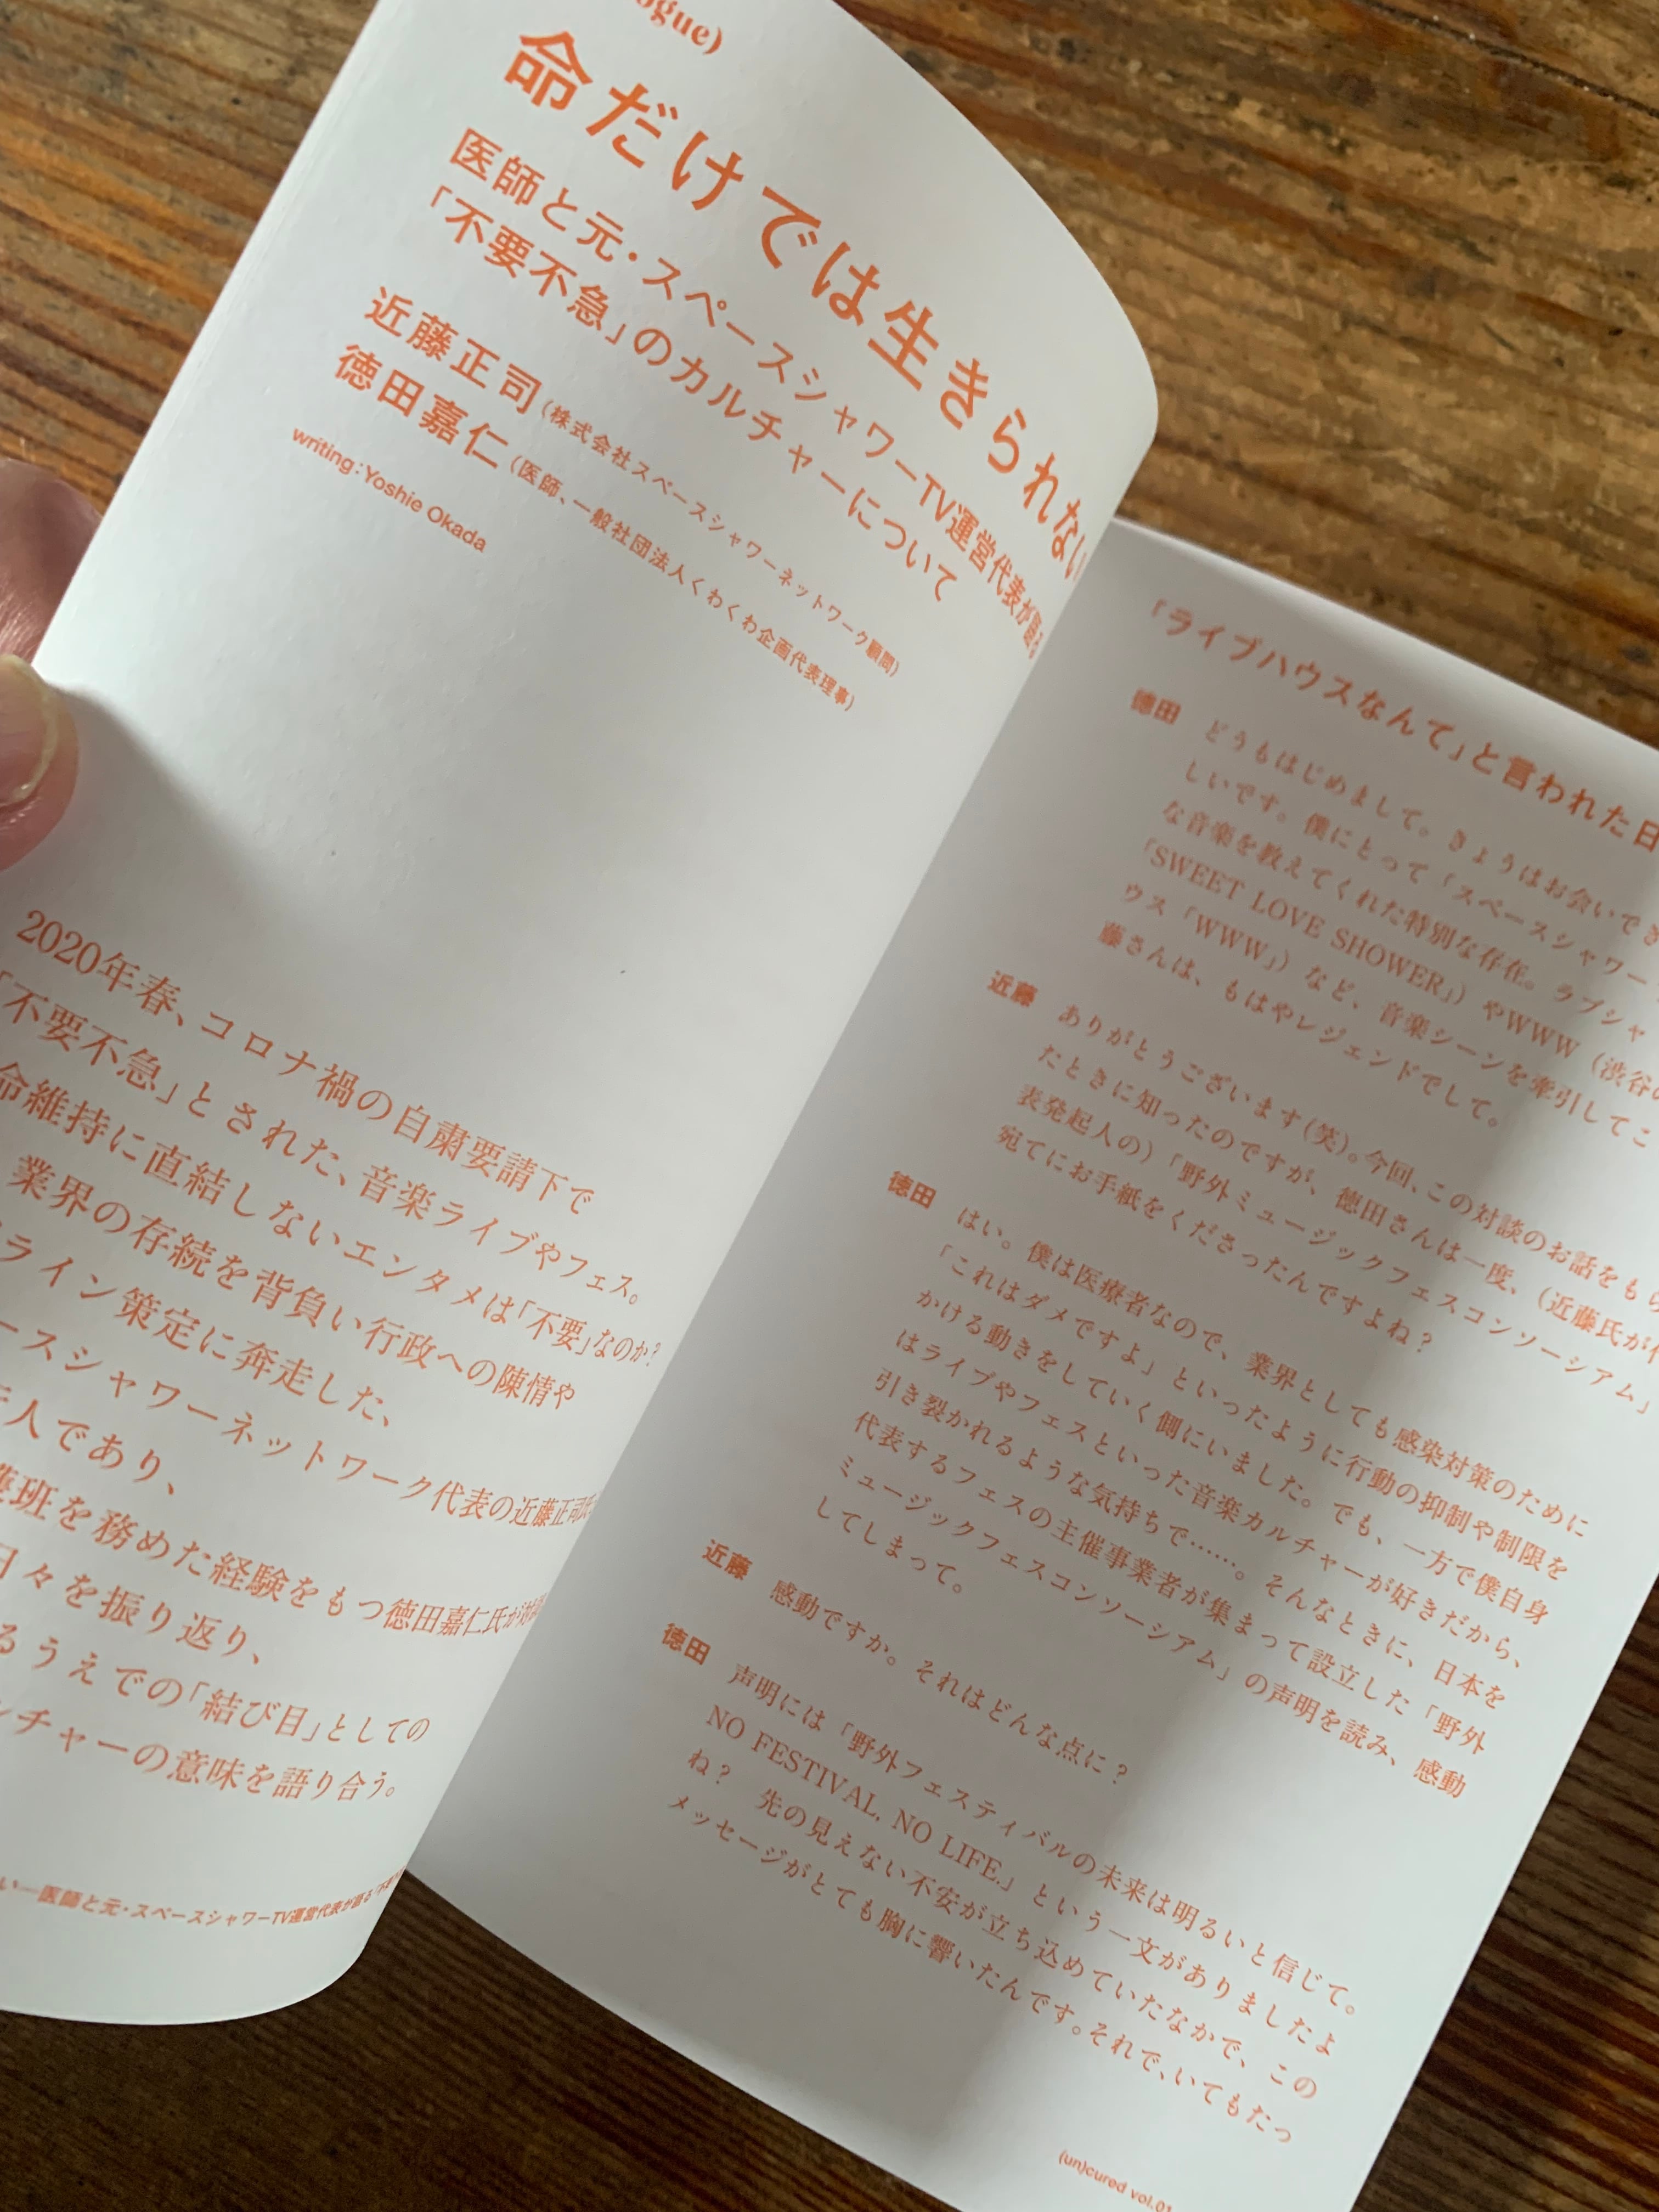 ogue)
命だけでは生きられない
医師と元・スペースシャワーTV運営代表が語る
「不要不急」のカルチャーについて
近藤正司(株式会社スペースシャワーネットワーク顧問)
徳田嘉仁(医師、一般社団法人くわくわ企画代表理事)
writing:Yoshie Okada
2020年春、コロナ禍の自粛要請下で
「不要不急」とされた、音楽ライブやフェス。
命維持に直結しないエンタメは「不要」なのか?
業界の存続を背負い行政への陳情や
ライン策定に奔走した、
ースシャワーネットワーク代表の近藤正司氏
人であり、
班を務めた経験をもつ徳田嘉仁氏が
日々を振り返り、
るうえでの「結び目」としての
ルチャーの意味を語り合う。
い—医師と元・スペースシャワーTV運営代表が語る「不要
「ライブハウスなんて」と言われた日
徳田 どうもはじめまして。きょうはお会いでき
しいです。僕にとって「スペースシャワー
な音楽を教えてくれた特別な存在。ラブシャ
「SWEET LOVE SHOWER」)やWWW(渋谷の
ウス「WWW」)など、音楽シーンを牽引してこ
藤さんは、もはやレジェンドでして。
近藤 ありがとうございます(笑)。今回、この対談のお話をもら
たときに知ったのですが、徳田さんは一度、(近藤氏が代
表発起人の)「野外ミュージックフェスコンソーシアム」
宛てにお手紙をくださったんですよね?
徳田 はい。僕は医療者なので、業界としても感染対策のために
「これはダメですよ」といったように行動の抑制や制限を
かける動きをしていく側にいました。でも、一方で僕自身
はライブやフェスといった音楽カルチャーが好きだから、
引き裂かれるような気持ちで……。そんなときに、日本を
代表するフェスの主催事業者が集まって設立した「野外
ミュージックフェスコンソーシアム」の声明を読み、感動
してしまって。
近藤 感動ですか。それはどんな点に?
徳田 声明には「野外フェスティバルの未来は明るいと信じて。
NO FESTIVAL, NO LIFE.」という一文がありましたよ
ね? 先の見えない不安が立ち込めていたなかで、この
メッセージがとても胸に響いたんです。それで、いてもたっ
(un)cured vol.01